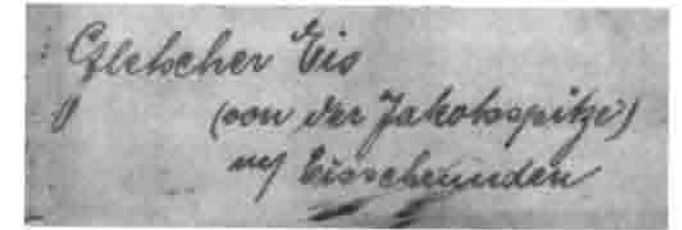 Gletscher Eis
(von der Jakobsspitze)
Eisschrunden